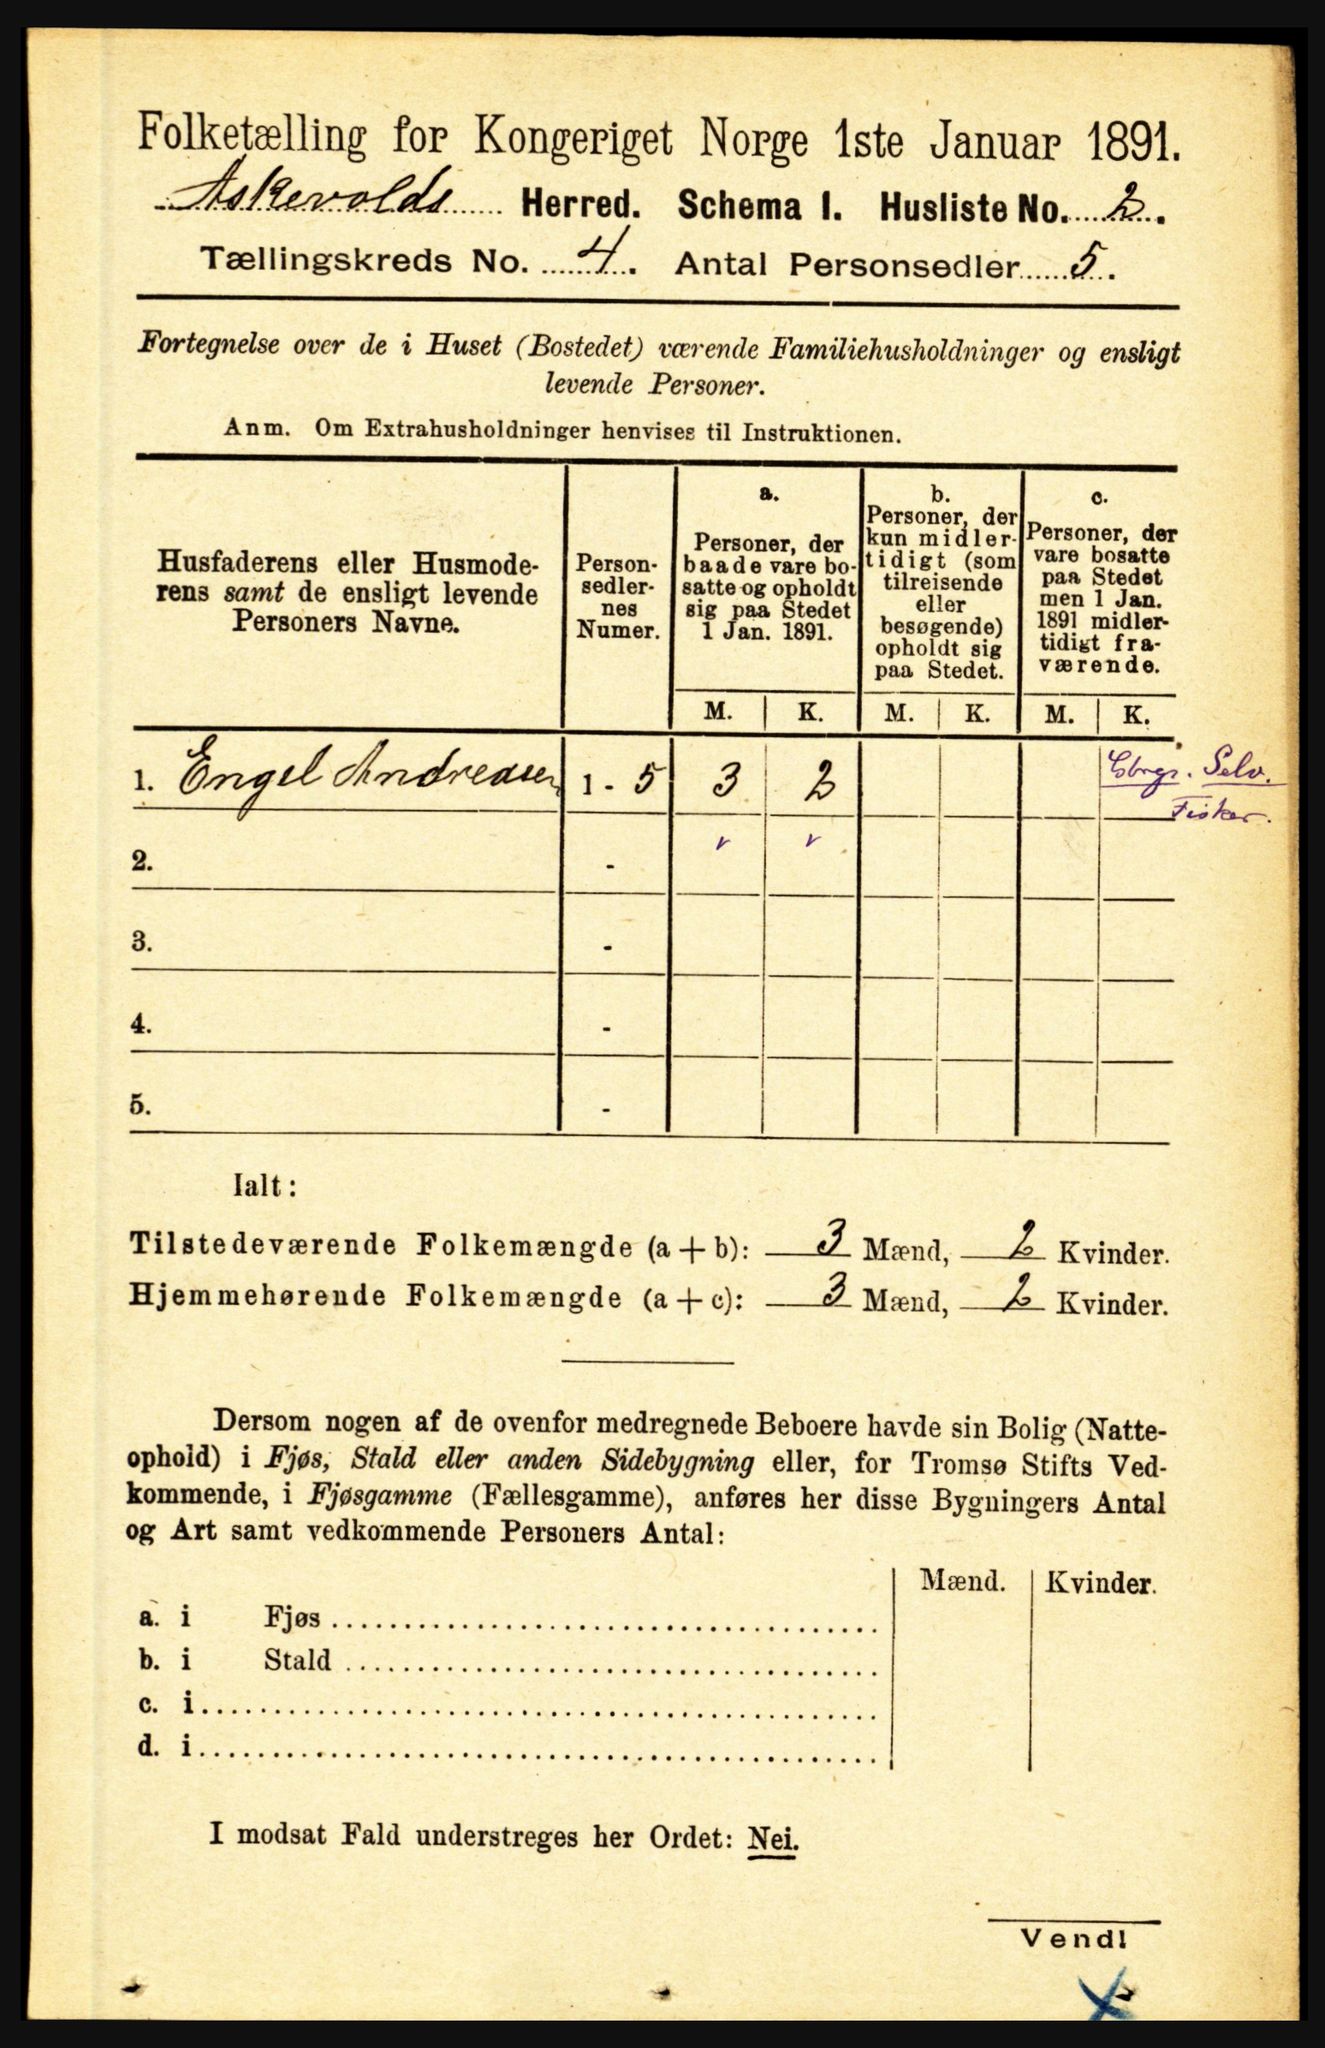 Folketælling for Kongeriget Norge 1ste Januar 1891.
Askevolds Herred. Schema I. Husliste No. 2.
Tællingskreds No. 4. Antal Personsedler 5.
Fortegnelse over de i Huset (Bostedet) værende Familiehusholdninger og ensligt
levende Personer.
Anm. Om Extrahusholdninger henvises til Instruktionen.
Husfaderens eller Husmode-
rens samt de ensligt levende
Personers Navne.
Person-
sedler-
nes
Numer.
a.
Personer, der
baade vare bo-
satte og opholdt
sig paa Stedet
1 Jan. 1891.
b.
Personer, der
kun midler-
tidigt (som
tilreisende
eller
besøgende)
opholdt sig
paa Stedet.
c.
Personer, der
vare bosatte
paa Stedet
men 1 Jan.
1891 midler-
tidigt fra-
værende.
M. K. M. K. M. K.
1. Engel Andreasen 1 - 5 3 2
Gbrgr. Selv.
Fisker.
2. -
3. -
4. -
5. -
Ialt:
Tilstedeværende Folkemængde (a + b): 3 Mænd, 2 Kvinder.
Hjemmehørende Folkemængde (a + c): 3 Mænd, 2 Kvinder.
Dersom nogen af de ovenfor medregnede Beboere havde sin Bolig (Natte-
ophold) i Fjøs, Stald eller anden Sidebygning eller, for Tromsø Stifts Ved-
kommende, i Fjøsgamme (Fællesgamme), anføres her disse Bygningers Antal
og Art samt vedkommende Personers Antal:
Mænd. Kvinder.
a. i Fjøs
b. i Stald
c. i
d. i
I modsat Fald understreges her Ordet: Nei.
Vend!